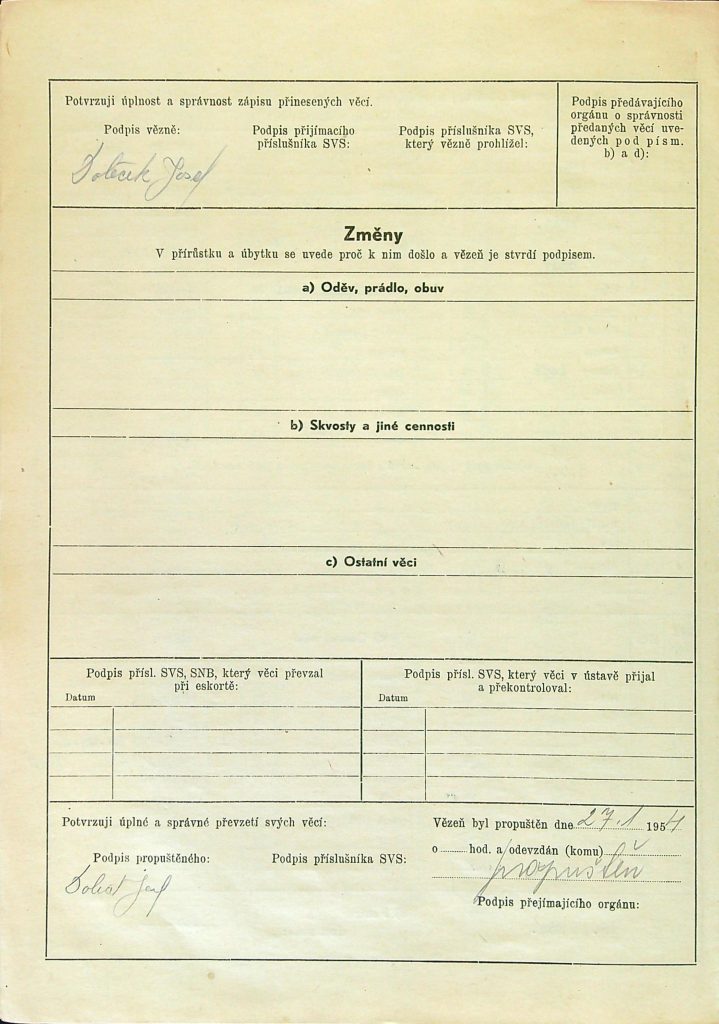 Potvrzuji úplnost a správnost zápisu přinesených věcí.
Podpis vězně:
Podpis přijímacího
příslušníka SVS:
Podpis příslušníka SVS,
který vězně prohlížel:
Podpis předávajícího
orgánu o správnosti
předaných věcí uve-
dených pod písm.
b) a d):
Josef
Změny
V přírůstku a úbytku se uvede proč k nim došlo a vězeň je stvrdí podpisem.
a) Oděv, prádlo, obuv
b) Skvosty a jiné cennosti
c) Ostatní věci
Podpis přísl. SVS, SNB, který věci převzal
při eskortě:
Datum
Podpis přísl. SVS, který věci v ústavě přijal
a překontroloval:
Datum
Potvrzuji úplné a správné převzetí svých věcí:
Podpis propuštěného:
Podpis příslušníka SVS:
Vězeň byl propuštěn dne 27.1 1954
o hod. a odevzdán (komu)
propuštěn
Podpis přejímajícího orgánu: